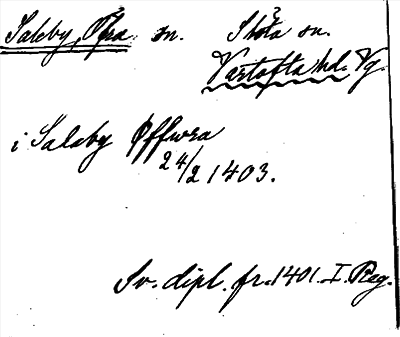 Saleby, Öfra sn. Skola sn.
Vartofta hd. Vg.
i Salaby Øffwra
24/2 1403.
Sv. dipl. fr. 1401. I. Reg.